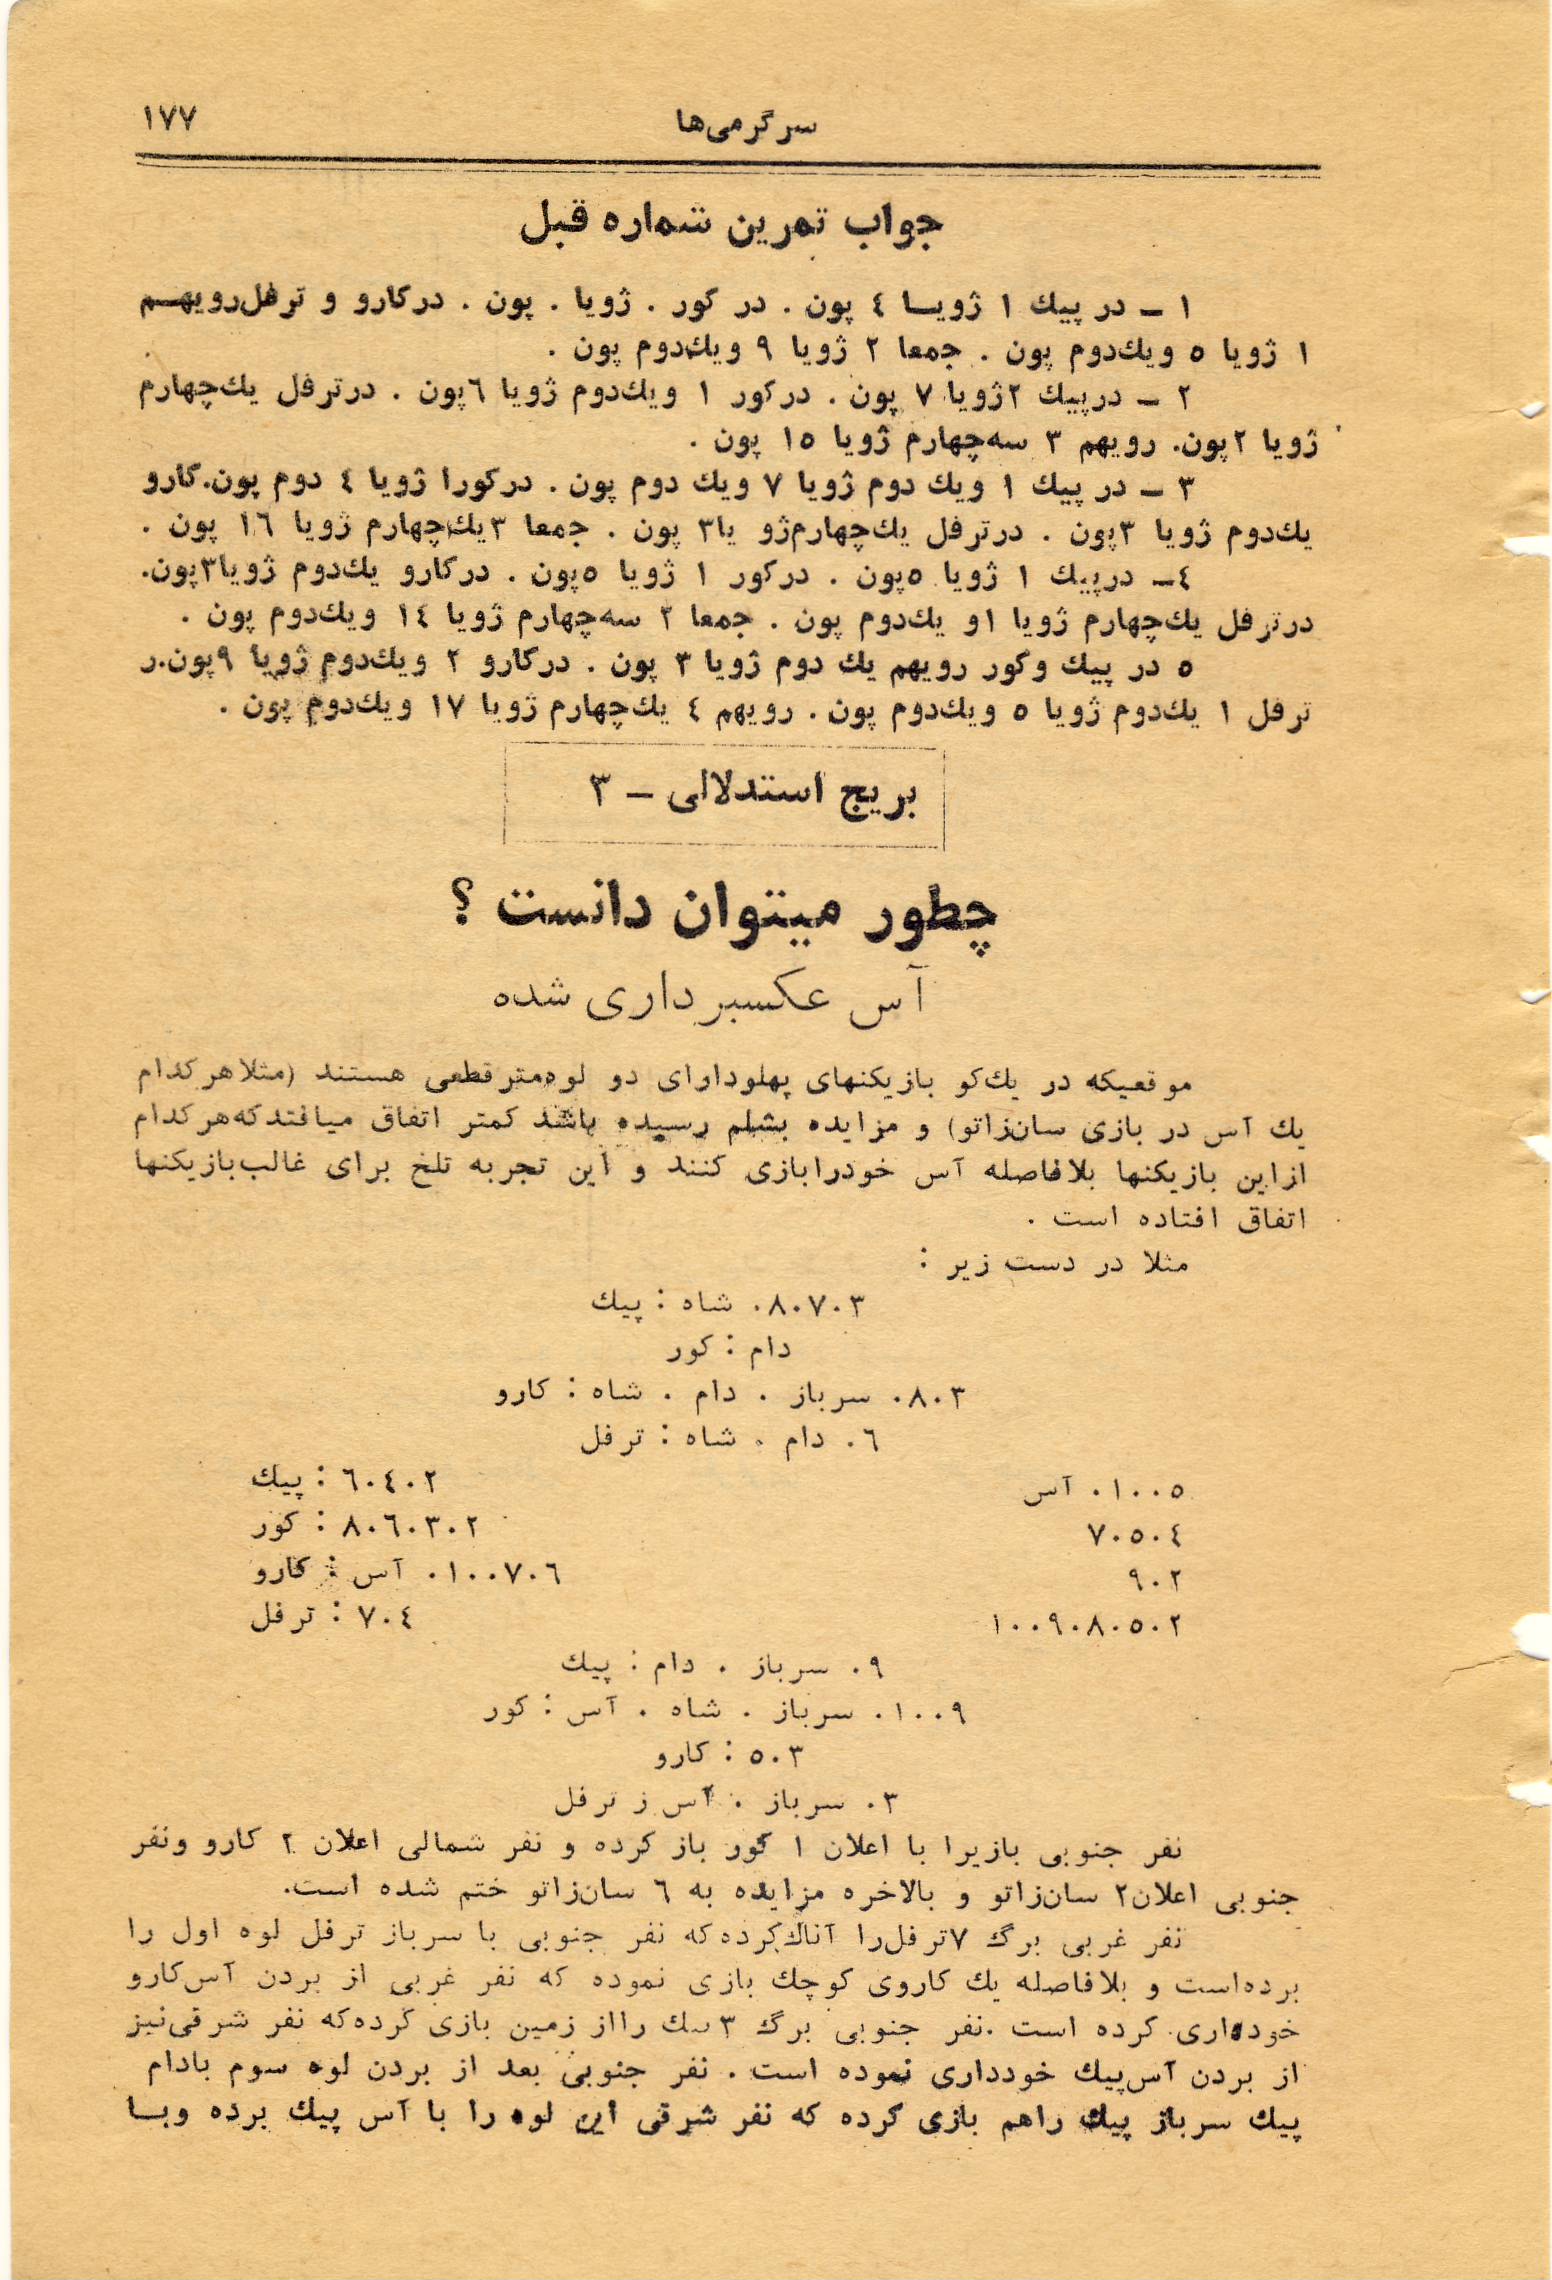 سرگرمی‌ها
۱۷۷
جواب تمرین شماره قبل
۱ ــ در پیك ۱ ژویــا ٤ پون . در كور . ژویا . پون . در كارو و ترفل‌رویهــم
۱ ژویا ٥ ویك‌دوم پون . جمعا ۲ ژویا ۹ ویك‌دوم پون .
۲ ــ در پیك ۲ ژویا ۷ پون . در كور ۱ ویك‌دوم ژویا ٦ پون . در ترفل یك‌چهارم
ژویا ۲ پون. رویهم ۳ سه‌چهارم ژویا ۱٥ پون .
۳ ــ در پیك ۱ ویك دوم ژویا ۷ ویك دوم پون . در كور۱ ژویا ٤ دوم پون. كارو
یك‌دوم ژویا ۳ پون . در ترفل یك‌چهارم‌ژو یا۳ پون . جمعا ۳ یك‌چهارم ژویا ۱٦ پون .
٤ــ در پیك ۱ ژویا ٥ پون . در كور ۱ ژویا ٥ پون . در كارو یك‌دوم ژویا۳ پون.
در ترفل یك‌چهارم ژویا ۱ و یك‌دوم پون . جمعا ۲ سه‌چهارم ژویا ۱٤ ویك‌دوم پون .
٥ در پیك وكور رویهم یك دوم ژویا ۳ پون . در كارو ۲ ویك‌دوم ژویا ۹ پون.ر
ترفل ۱ یك‌دوم ژویا ٥ ویك‌دوم پون . رویهم ٤ یك‌چهارم ژویا ۱۷ ویك‌دوم پون .
بریج استدلالی ــ ۳
چطور میتوان دانست ؟
آس عكسبرداری شده
موقعیكه در یك‌كو بازیكنهای پهلودارای دو لوه‌مترقطعی هستند (مثلا هركدام
یك آس در بازی سان‌زاتو) و مزایده بشلم رسیده باشد كمتر اتفاق میافتد كه هركدام
از این بازیكنها بلافاصله آس خود را بازی كنند و این تجربه تلخ برای غالب بازیكنها
اتفاق افتاده است .
مثلا در دست زیر :
۸۰۷۰۳۰ شاه : پیك
دام : كور
۸۰۳۰ سرباز . دام . شاه : كارو
٦۰ دام . شاه : ترفل
۱۰۰٥۰ آس
٦۰٤۰۲ : پیك
۷۰٥۰٤
۸۰٦۰۳۰۲ : كور
۹۰۲
۱۰۰۷۰٦۰ آس : كارو
۱۰۰۹۰۸۰٥۰۲
۷۰٤ : ترفل
۹۰ سرباز . دام : پیك
۱۰۰۹۰ سرباز . شاه . آس : كور
٥۰۳ : كارو
۳۰ سرباز . آس ز ترفل
نفر جنوبی بازیرا با اعلان ۱ كور باز كرده و نفر شمالی اعلان ۲ كارو ونفر
جنوبی اعلان۲ سان‌زاتو و بالاخره مزایده به ٦ سان‌زاتو ختم شده است.
نفر غربی برگ ۷ ترفل‌را آتاك‌كرده كه نفر جنوبی با سرباز ترفل لوه اول را
برده‌است و بلافاصله یك كاروی كوچك بازی نموده كه نفر غربی از بردن آس‌كارو
خودداری كرده است .نفر جنوبی برگ ۳ پیك را از زمین بازی كرده كه نفر شرقی نیز
از بردن آس‌پیك خودداری نموده است . نفر جنوبی بعد از بردن لوه سوم بادام
پیك سرباز پیك راهم بازی كرده كه نفر شرقی این لوه را با آس پیك برده وبــا